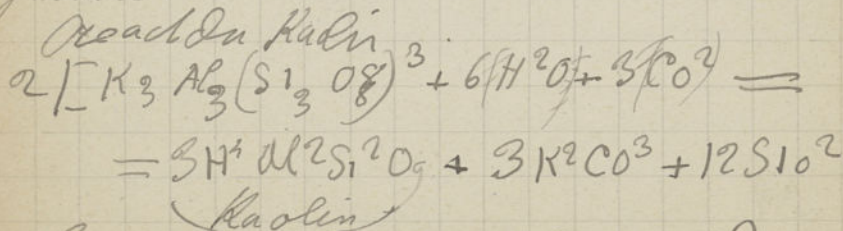 Kaolin
2 [K3 Al3(Si3 O8)3 + 6(H2O) + 3(Co2) =
= 3H4 Al2Si2O9 + 3K2CO3 + 12SiO2
Kaolin